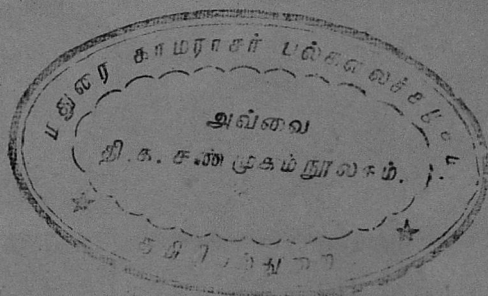 மதுரை காமராசர் பல்கலைக்கழகம்
அவ்வை
தி.க. சண்முகம் நூலகம்.
தமிழ்த்துறை